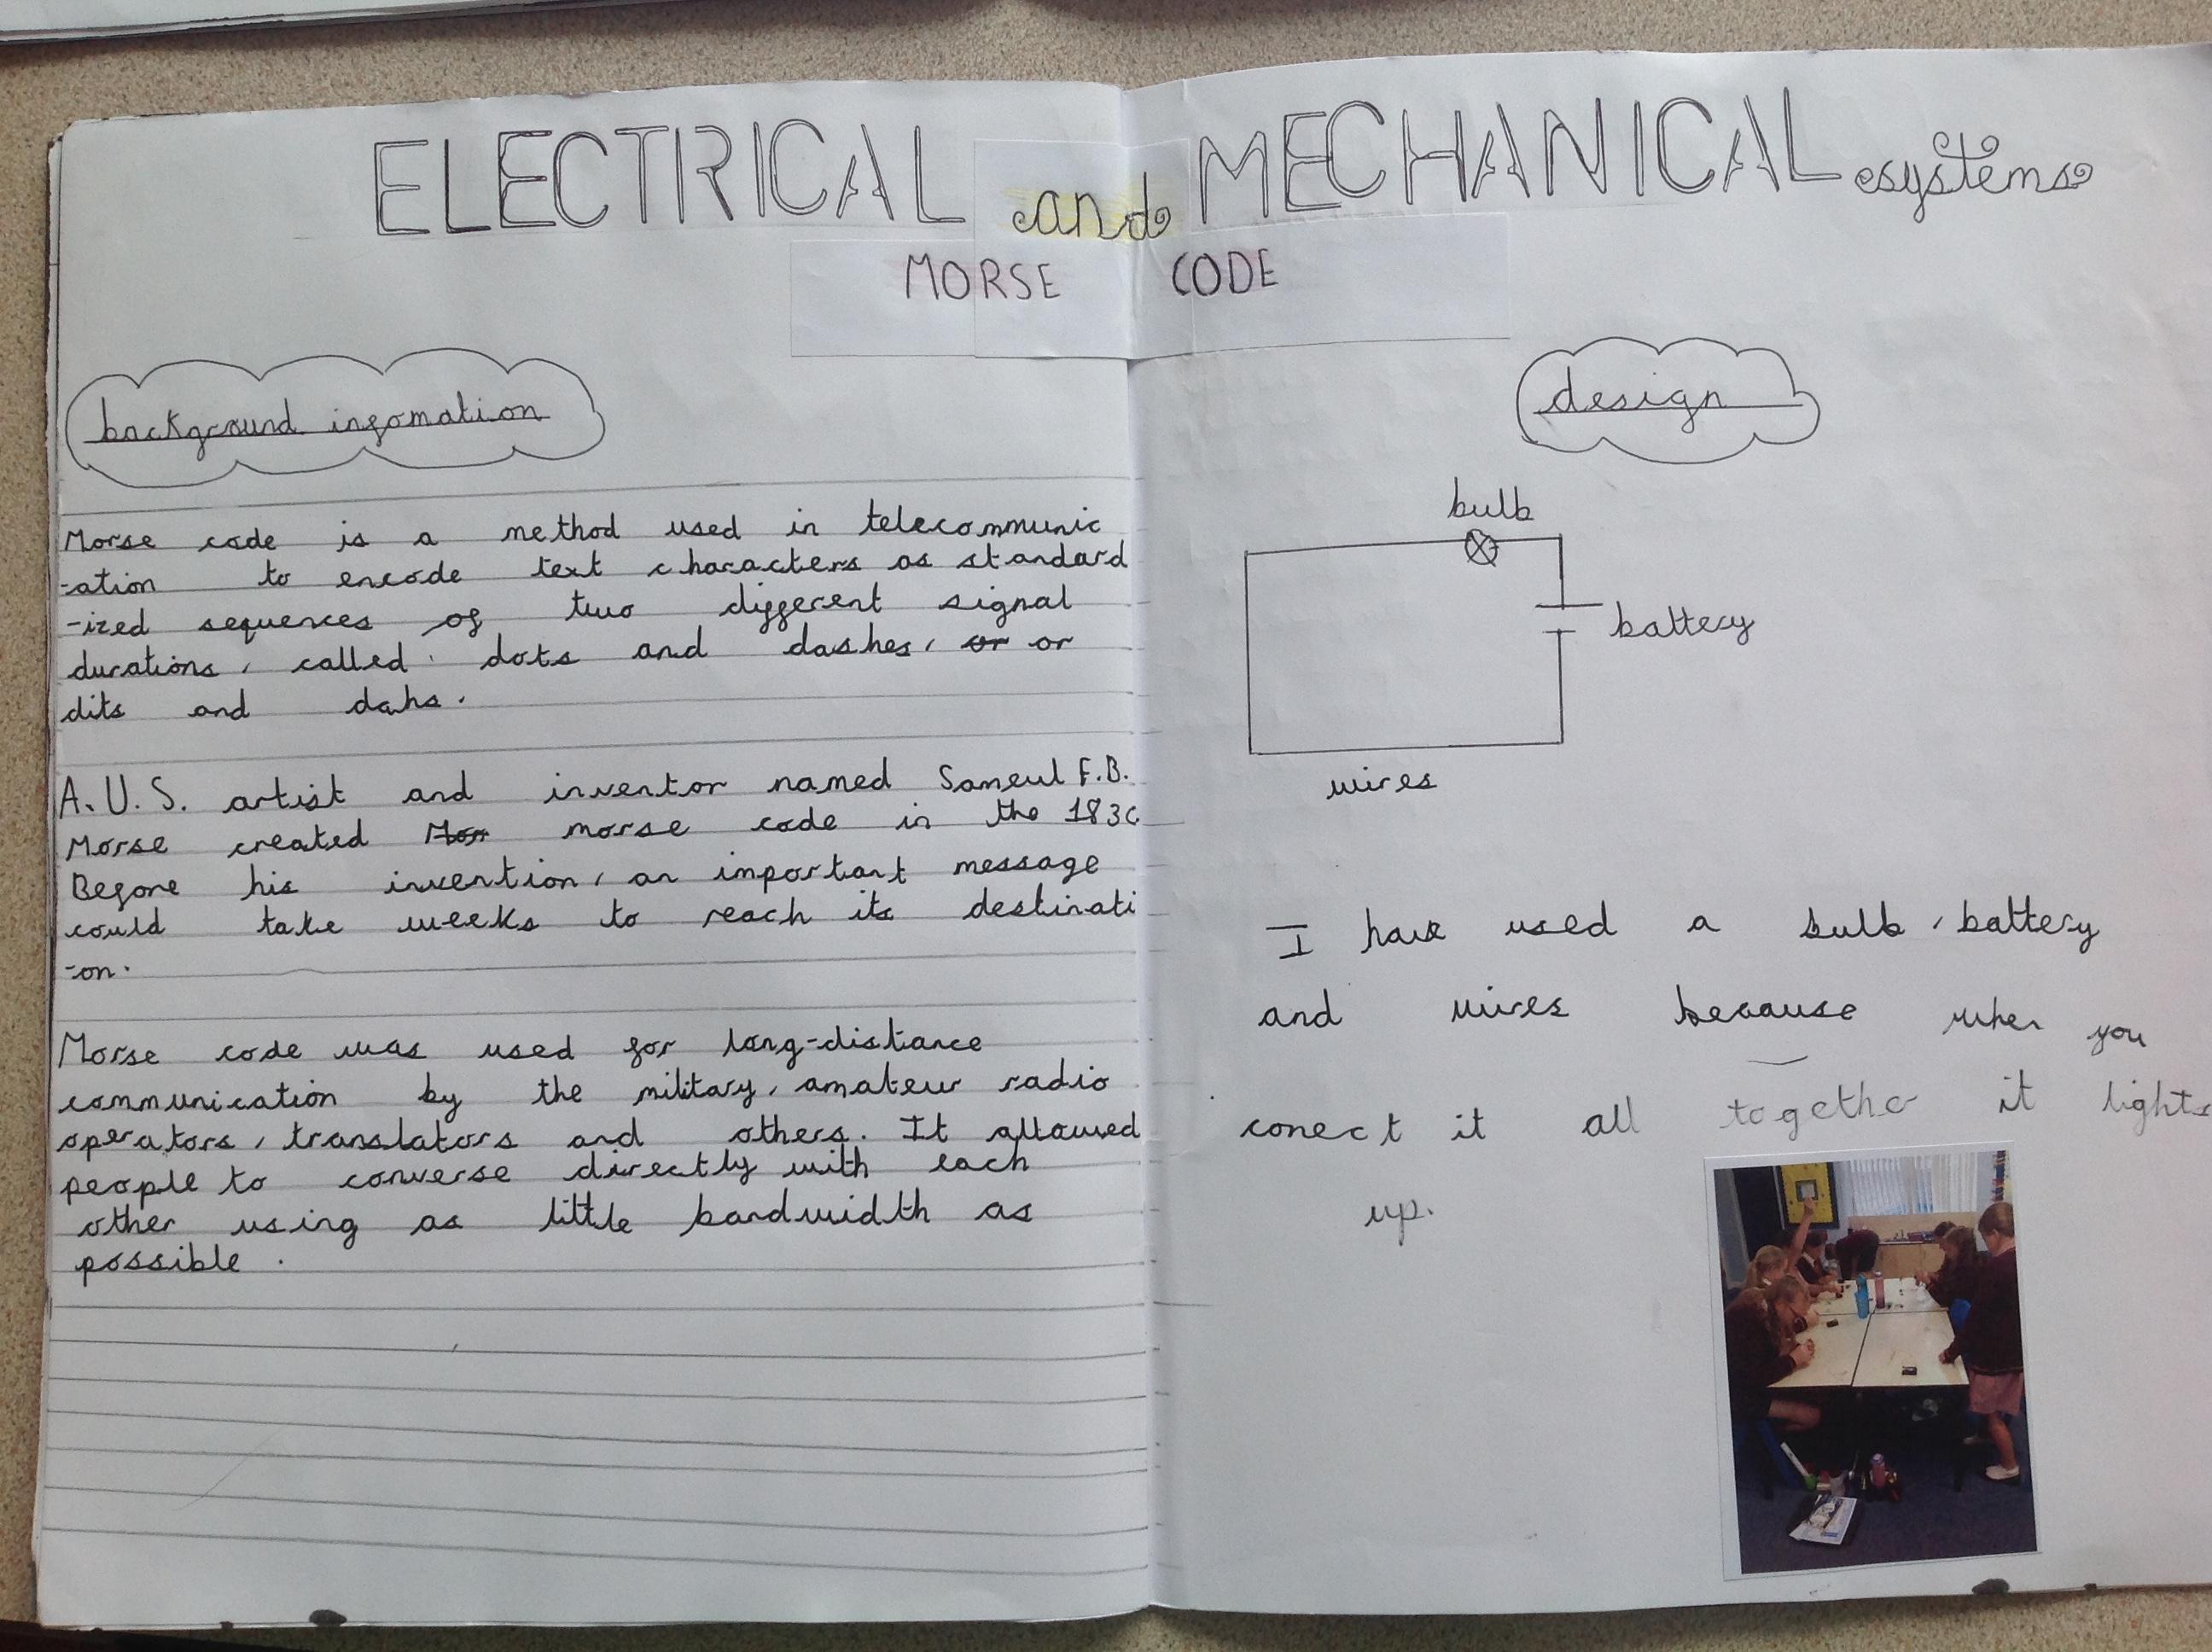 ELECTRICAL and MECHANICAL systems
MORSE CODE
background infomation
Morse code is a method used in telecommunic
-ation to encode text characters as standard
-ized sequences of two different signal
durations, called dots and dashes, or or
dits and dahs.
A.U.S. artist and inventor named Sameul F.B.
Morse created Mor morse code in the 183
Before his invention, an important message
could take weeks to reach its destinati
-on.
Morse code was used for long-distance
communication by the military, amateur radio
operators, translators and others. It allowed
people to converse directly with each
other using as little bandwidth as
possible.
design
bulb
battery
wires
I have used a bulb, battery
and wires because when you
conect it all together it lights
up.